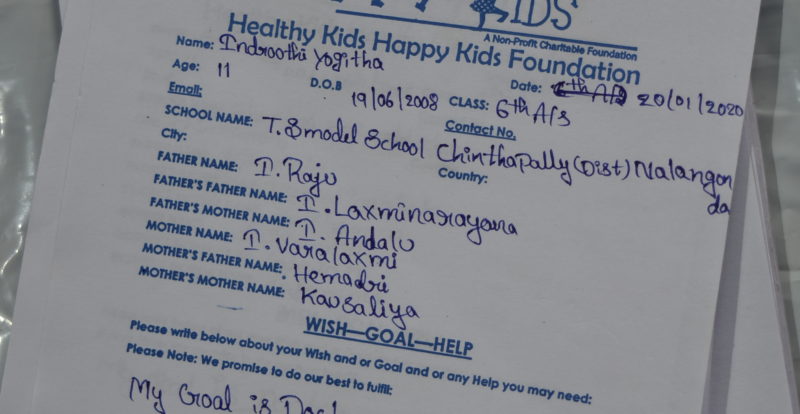 KIDS
A Non-Profit Charitable Foundation
Healthy Kids Happy Kids Foundation
Name: Indroothi Yogitha
Age: 11 D.O.B 19/06/2008 CLASS: 6th A/S Date: 20/01/2020
Email: Contact No.
SCHOOL NAME: T.Smodel School Chinthapally (Dist) Nalangon
da
City: Country:
FATHER NAME: I. Raju
FATHER'S FATHER NAME: I. Laxminarayana
FATHER'S MOTHER NAME: I. Andalu
MOTHER NAME: I. Varalaxmi
MOTHER'S FATHER NAME: Hemadri
MOTHER'S MOTHER NAME: Kausaliya
WISH—GOAL—HELP
Please write below about your Wish and or Goal and or any Help you may need:
Please Note: We promise to do our best to fulfil:
My Goal is